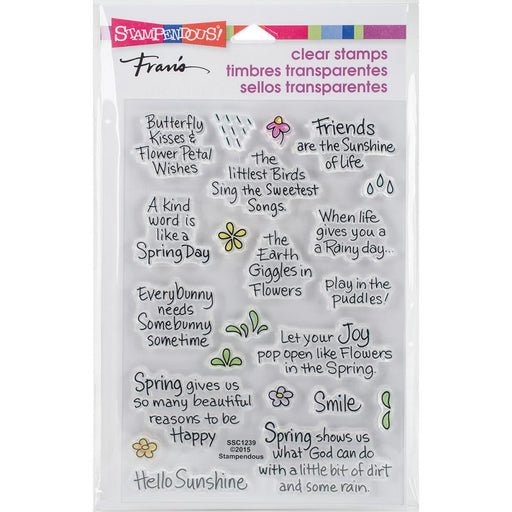 STAMPENDOUS!
Fran's
clear stamps
timbres transparentes
sellos transparentes
Butterfly
Kisses &
Flower Petal
Wishes
Friends
are the Sunshine
of Life
The
littlest Birds
Sing the Sweetest
Songs.
A kind
word is
like a
Spring Day
When life
gives you a
a Rainy day...
The
Earth
Giggles in
Flowers
play in the
puddles!
Everybunny
needs
Somebunny
sometime
Let your Joy
pop open like Flowers
in the Spring.
Spring gives us
so many beautiful
reasons to be
Happy
Smile
SSC1239
©2015
Stampendous
Spring shows us
what God can do
with a little bit of dirt
and some rain.
Hello Sunshine